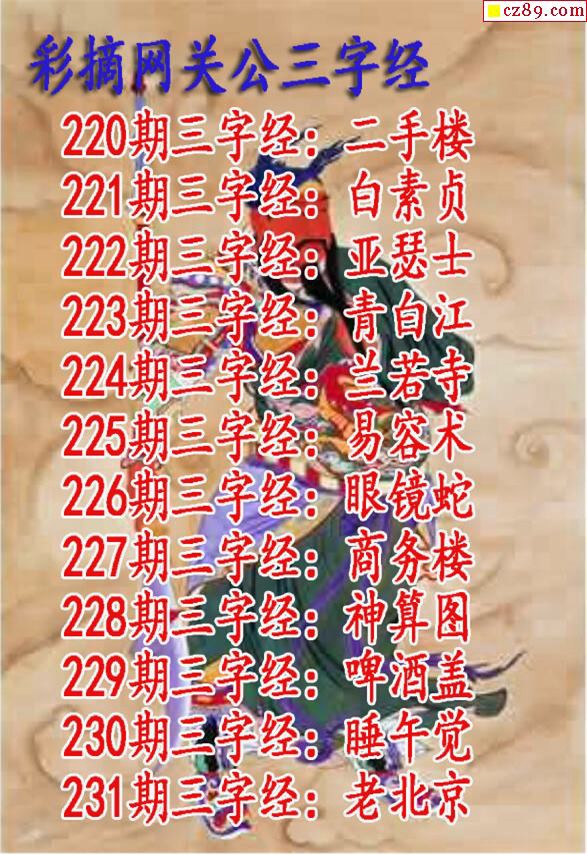 cz89.com
彩摘网关公三字经
220期三字经：二手楼
221期三字经：白素贞
222期三字经：亚瑟士
223期三字经：青白江
224期三字经：兰若寺
225期三字经：易容术
226期三字经：眼镜蛇
227期三字经：商务楼
228期三字经：神算图
229期三字经：啤酒盖
230期三字经：睡午觉
231期三字经：老北京